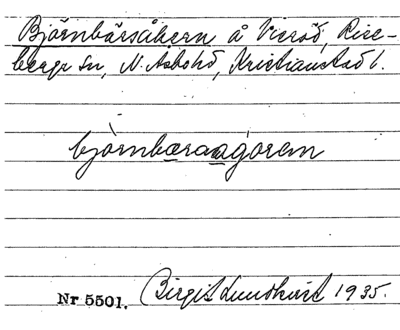 Björnbärsåkern å Vieröd, Rise-
berga sn, N. Åsbo hd, Kristianstad l.
björnbæraagorem
Nr 5501. Birgit Lundkvist 1935.